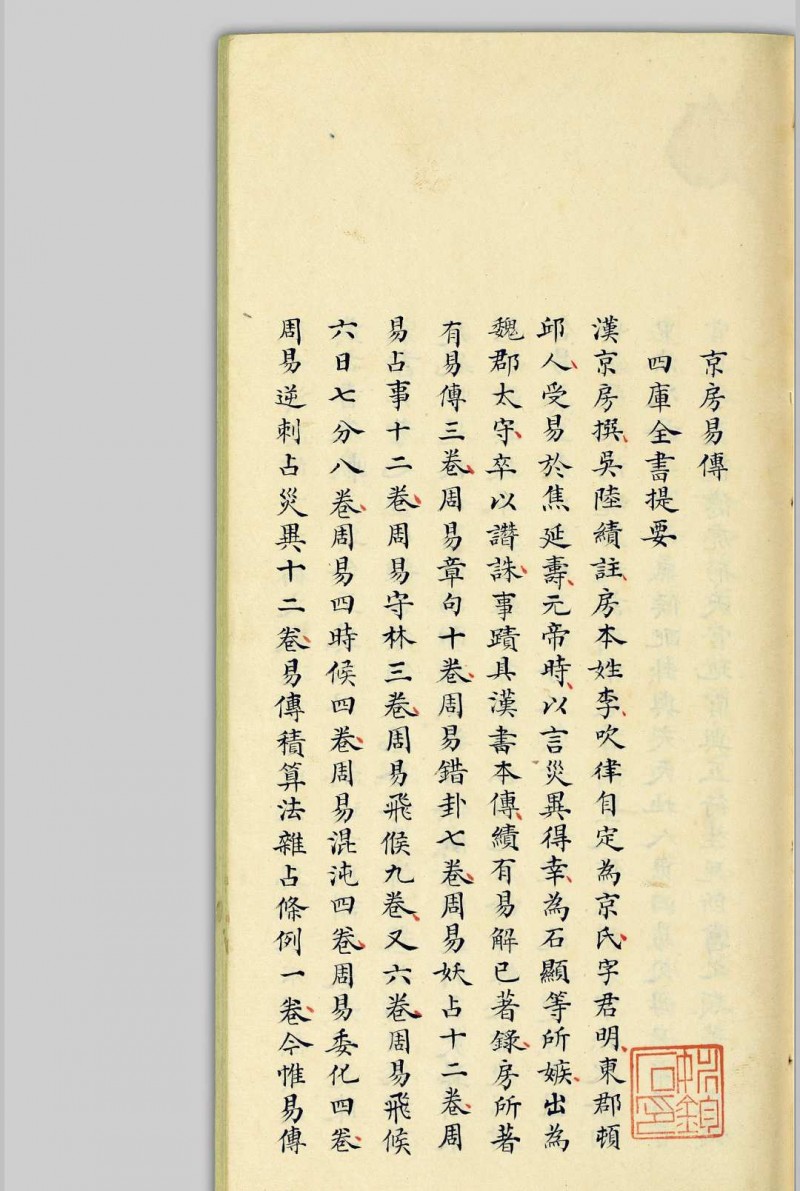 京房易傳
四庫全書提要
漢京房撰吳陸績註房本姓李吹律自定為京氏字君明東郡頓
邱人受易於焦延壽元帝時以言災異得幸為石顯等所嫉出為
魏郡太守卒以譖誅事蹟具漢書本傳績有易解已著錄房所著
有易傳三卷周易章句十卷周易錯卦七卷周易妖占十二卷周
易占事十二卷周易守林三卷周易飛候九卷又六卷周易飛候
六日七分八卷周易四時候四卷周易混沌四卷周易委化四卷
周易逆刺占災異十二卷易傳積算法雜占條例一卷今惟易傳